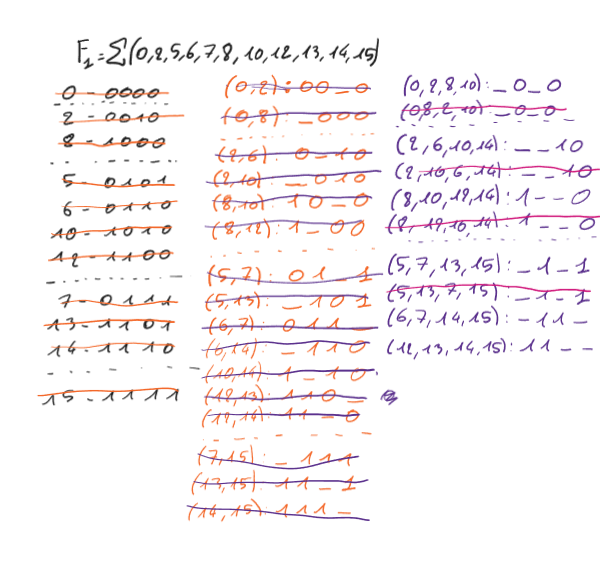 F₁ = Σ(0,2,5,6,7,8,10,12,13,14,15)
0 - 0000
2 - 0010
8 - 1000
5 - 0101
6 - 0110
10 - 1010
12 - 1100
7 - 0111
13 - 1101
14 - 1110
15 - 1111
(0,2): 00_0
(0,8): _000
(2,6): 0_10
(2,10): _010
(8,10): 10_0
(8,12): 1_00
(5,7): 01_1
(5,13): _101
(6,7): 011_
(6,14): _110
(10,14): 1_10
(12,13): 110_
(12,14): 11_0
(7,15): _111
(13,15): 11_1
(14,15): 111_
(0,2,8,10): _0_0
(0,8,2,10): _0_0
(2,6,10,14): __10
(2,10,6,14): __10
(8,10,12,14): 1__0
(8,12,10,14): 1__0
(5,7,13,15): _1_1
(5,13,7,15): _1_1
(6,7,14,15): _11_
(12,13,14,15): 11__